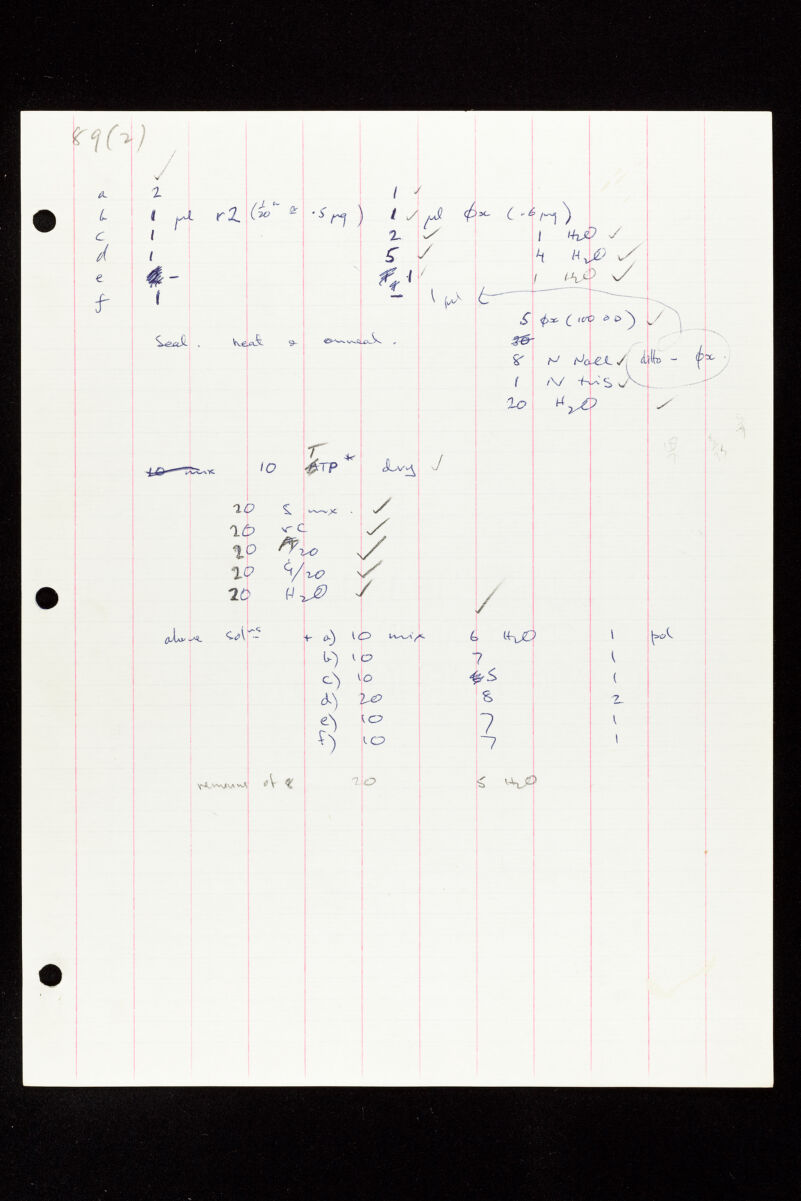 89(2)
✓
a 2 1 ✓
b 1 µl r2 (1/20 .5 µg) 1 ✓ µl ϕx (.6 µg)
c 1 2 ✓ 1 H2O ✓
d 1 5 ✓ 4 H2O ✓
e – 1 ✓ 1 H2O ✓
f 1 – 1 µl
5 ϕx (10000) ✓
Seal. heat & anneal.
8 N NaCl ✓ ditto – ϕx.
1 N tris ✓
20 H2O ✓
10 mix 10 TTP* dry ✓
20 S mix. ✓
20 rC ✓
20 A/20 ✓
20 G/20 ✓
20 H2O ✓
✓
above solns + a) 10 mix 6 H2O 1 pol
b) 10 7 1
c) 10 5 1
d) 20 8 2
e) 10 7 1
f) 10 7 1
remains of 20 5 H2O